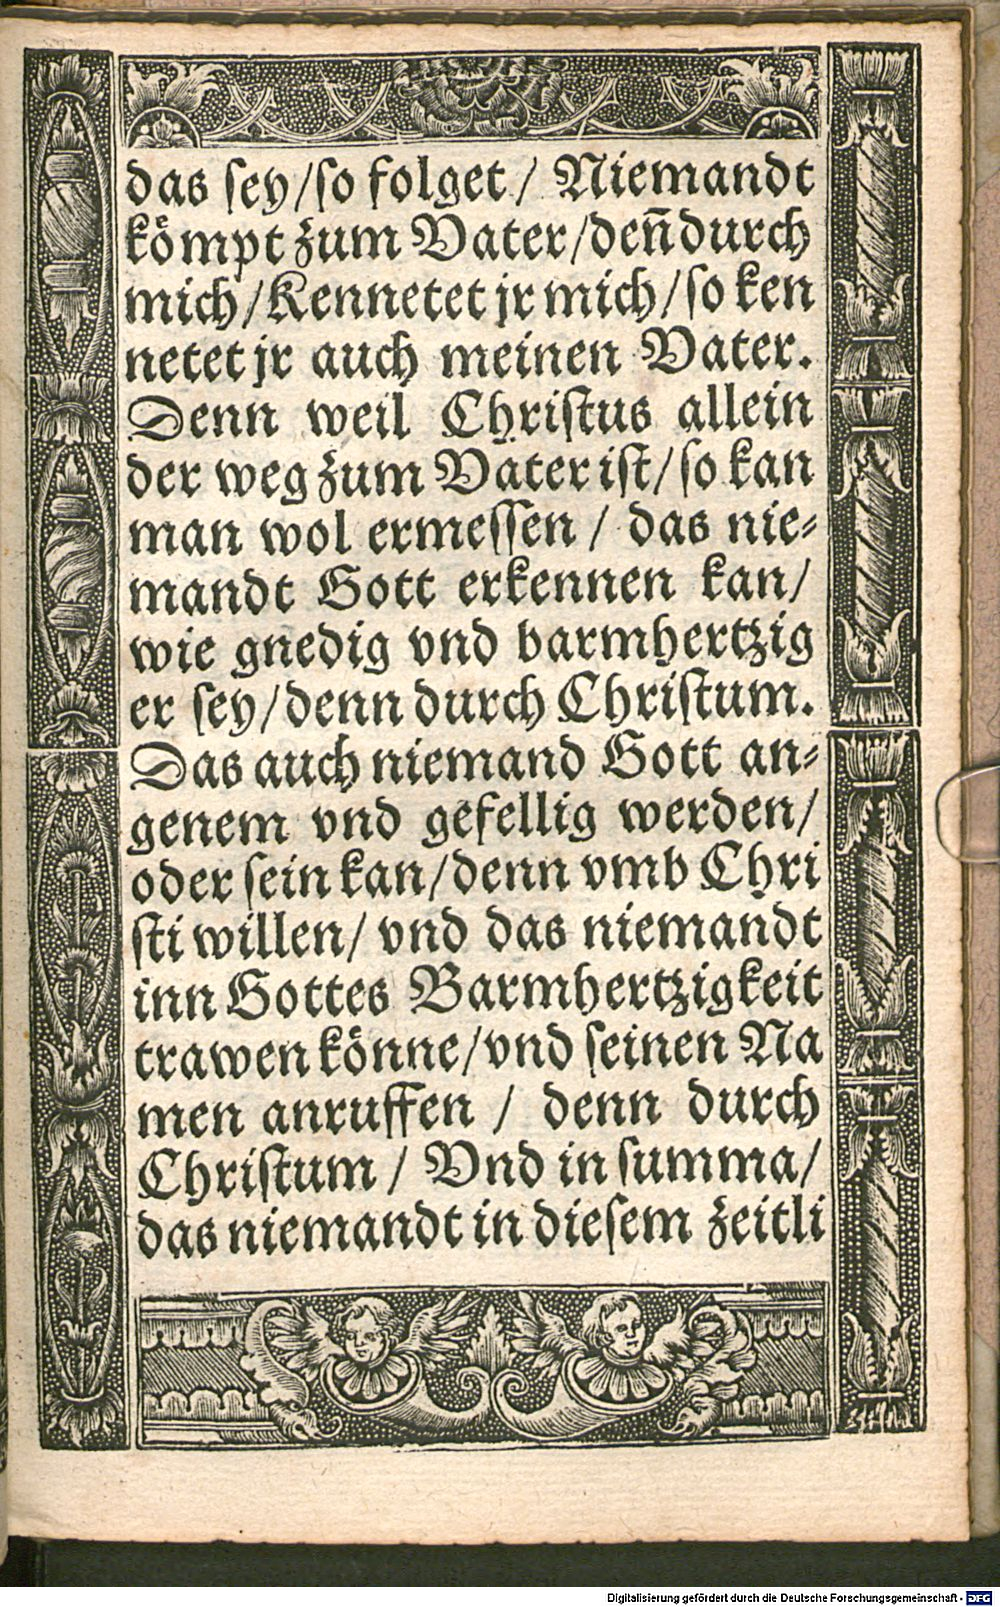 das sey/so folget/ Niemandt
kömpt zum Vater/den̄ durch
mich/Kennetet jr mich/so ken
netet jr auch meinen Vater.
Denn weil Christus allein
der weg zum Vater ist/so kan
man wol ermessen / das nie-
mandt Gott erkennen kan/
wie gnedig vnd barmhertzig
er sey/denn durch Christum.
Das auch niemand Gott an-
genem vnd gefellig werden/
oder sein kan/denn vmb Chri
sti willen/ vnd das niemandt
inn Gottes Barmhertzigkeit
trawen könne/vnd seinen Na
men anruffen / denn durch
Christum / Vnd in summa/
das niemandt in diesem zeitli
Digitalisierung gefördert durch die Deutsche Forschungsgemeinschaft - DFG